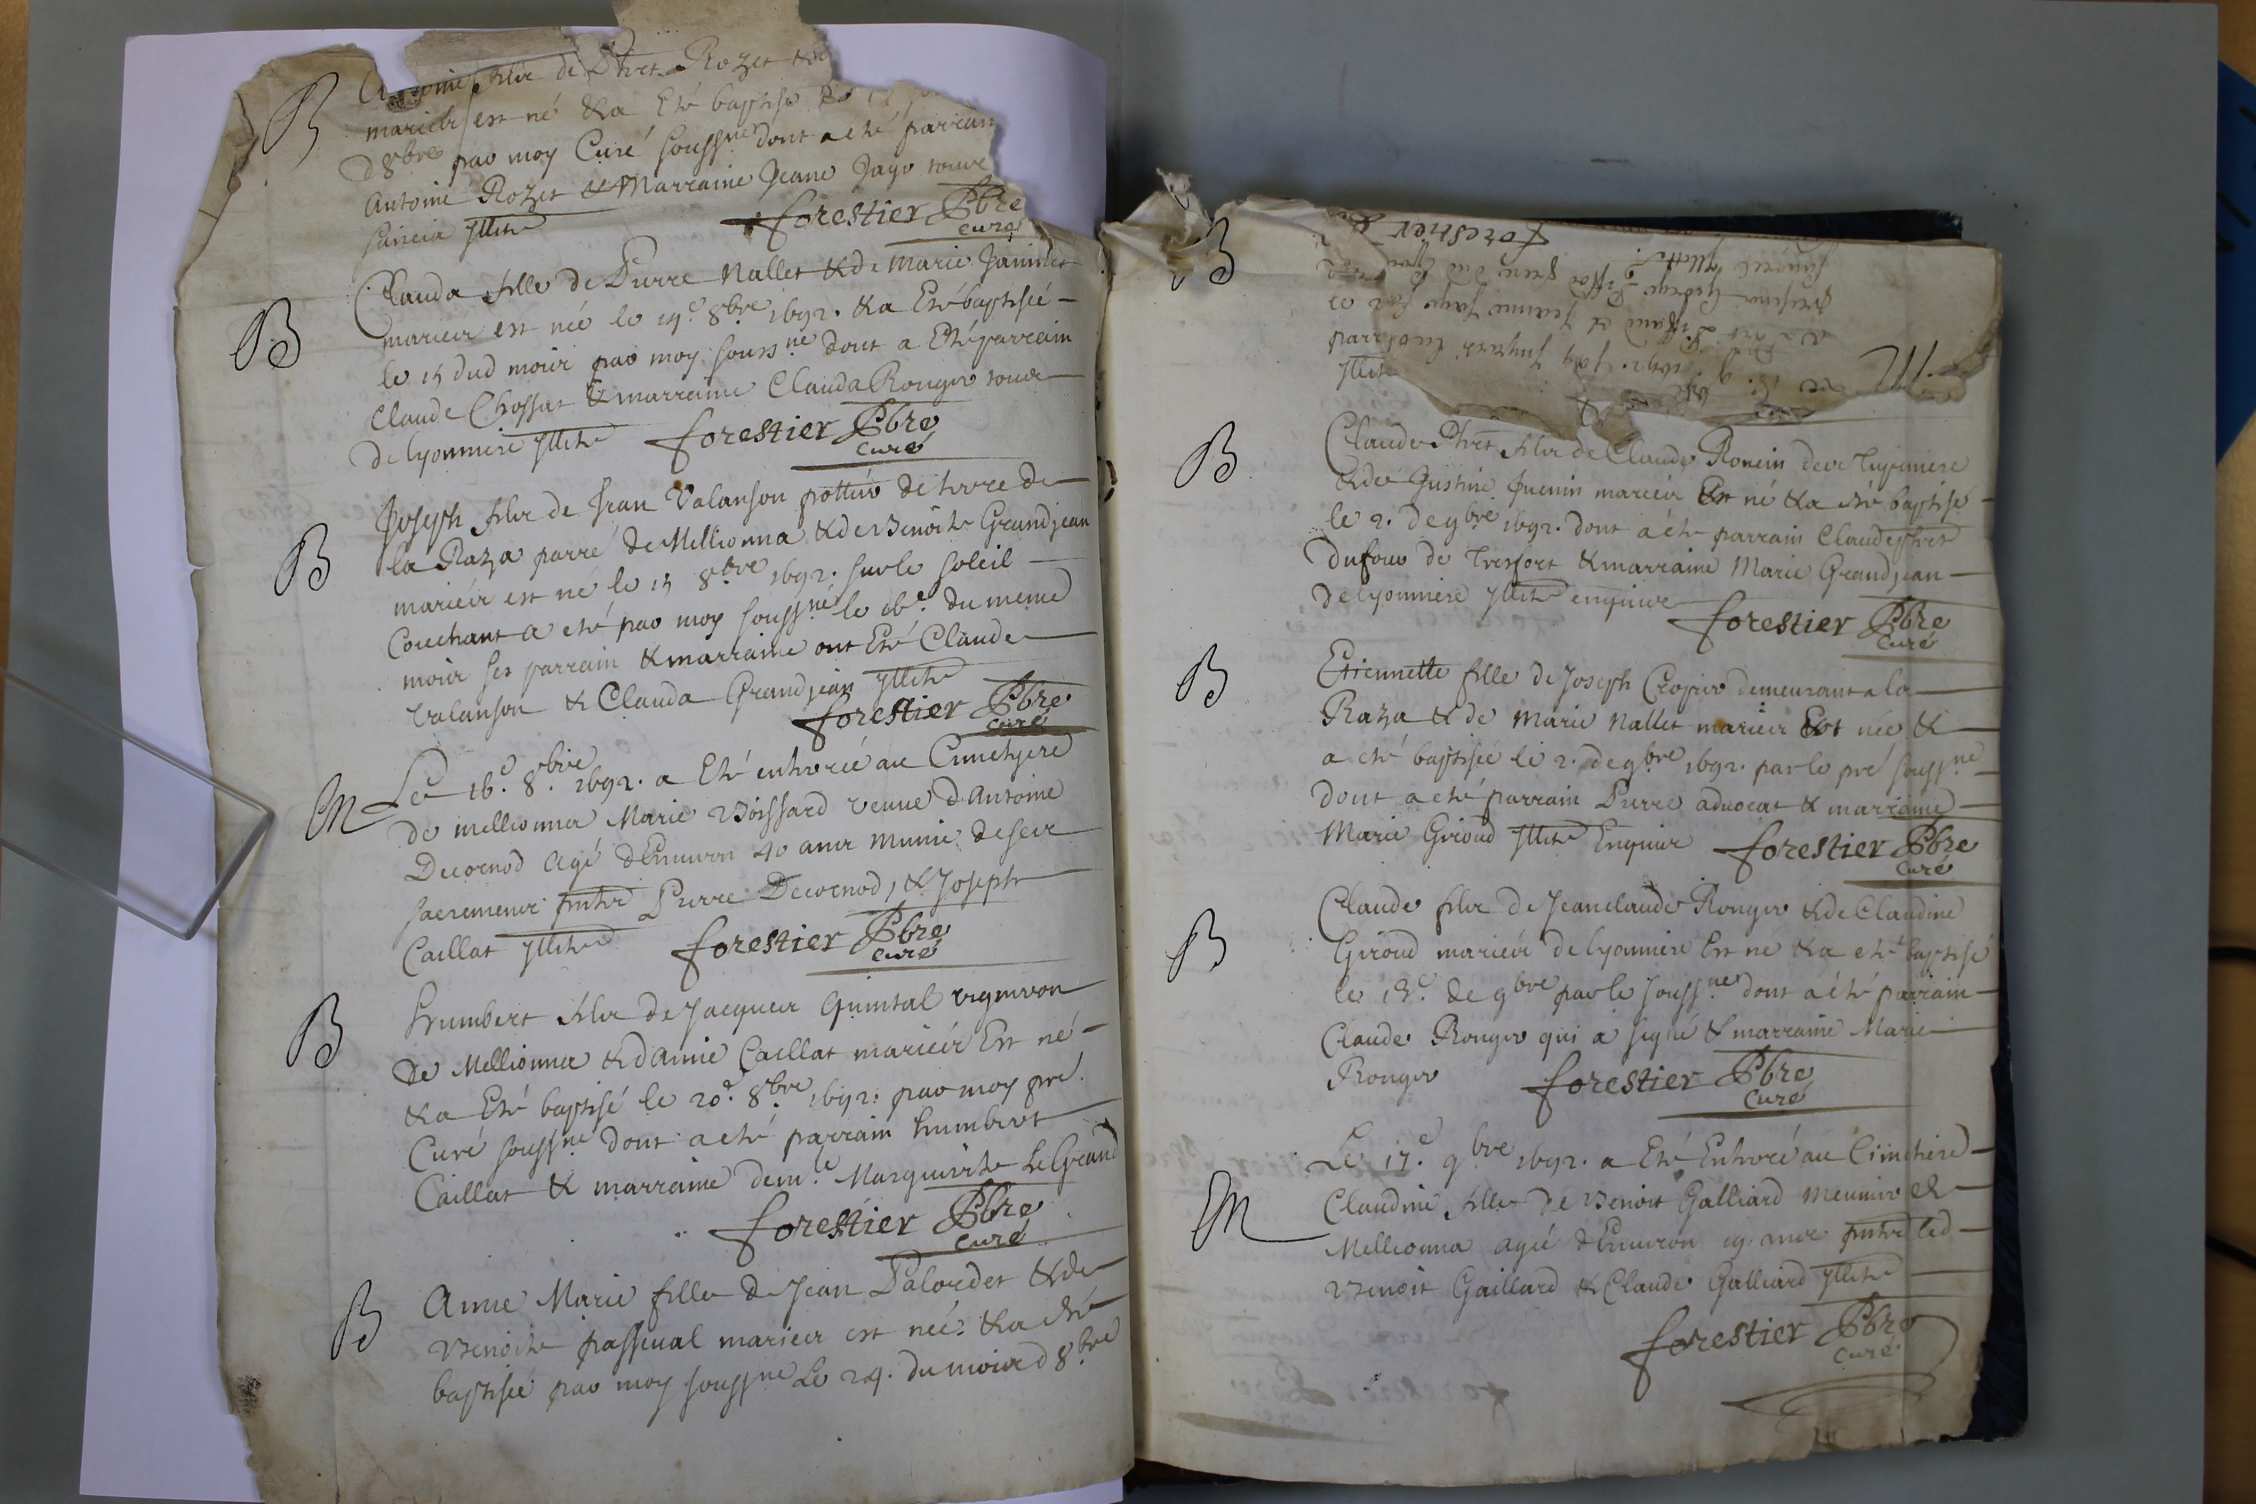 B
filz de Phet Rozet
mariéz est né & a Eté baptisé
d8bre par moy Curé soussne dont a eté parrain
Antoine Rozet & Marraine Jeane Jayr touts
sancia Illité
forestier Pbre
curé
B
Clauda fille de Pierre Nallet & de Marie Janinet
mariéz est née le 14e 8bre 1692. & a Eté baptisée
le 15 dud mois par moy soussne dont a Eté parrain
Claude Chossat & marraine Clauda Rouger touts
de lyonniere Illité forestier Pbre
curé
B
Joseph filz de Jean Valanson pottier de terre de
la Raza parré de Millionna & de Benoite Grandjean
mariéz est né le 15 8bre 1692. sur le soleil
Couchant a eté par moy soussné le 16e du meme
mois ses parrain & marraine ont Eté Claude
Valanson & Clauda Grandjean Illité
forestier Pbre
curé
M
Le 16e 8bre 1692. a Eté enterrée au Cimethiere
de millionna Marie Boissard veuve d'Antoine
Decornod agé d'Environ 40 ans munie de ses
sacremens Pierre Decornod, & Joseph
Caillat Illité forestier Pbre
curé
B
humbert filz de Jacques Quintal vigneron
de Mellionna & d'anne Caillat mariéz Est né
& a Eté baptisé le 20e 8bre 1692. par moy pre
Curé soussne dont a eté parrain humbert
Caillat & marraine deme Marguerite LeGrand
forestier Pbre
curé
B
Anne Marie fille de Jean Palordet & de
Benoite passeual mariéz est née & a eté
baptisée par moy soussne Le 24. du mois d8bre
B
forestier
parra
Illité
M
B
Claude Phet filz de Claude Roncin de
& de Justine Juenin mariéz Est né & a eté baptisé
le 2. de 9bre 1692. dont a été parrain Claude phet
dufour de Tresfort & marraine Marie Grandjean
de lyonniere Illité enquise
forestier Pbre
Curé
B
Etiennette fille de Joseph Cropier demeurant a la
Raza & de Marie Nallet mariéz Est née &
a eté baptisée le 2. de 9bre 1692. par le pré soussne
dont a eté parrain Pierre aduocat & marraine
Marie Giroud Illité Enquis forestier Pbre
Curé
B
Claude filz de Jeanclaude Rouger & de Claudine
Giroud mariéz de lyonniere Est né & a eté baptisé
le 13e de 9bre par le soussne dont a été parrain
Claude Rouger qui a signé & marraine Marie
Rouger forestier Pbre
Curé
M
Le 17e 9bre 1692. a Eté Enterré au Cimetiere
Claudine fille de Benoit Galliard meunier de
Mellionna agée d'Environ 19. led
Benoit Gaillard & Claude Galliard Illité
forestier Pbre
curé